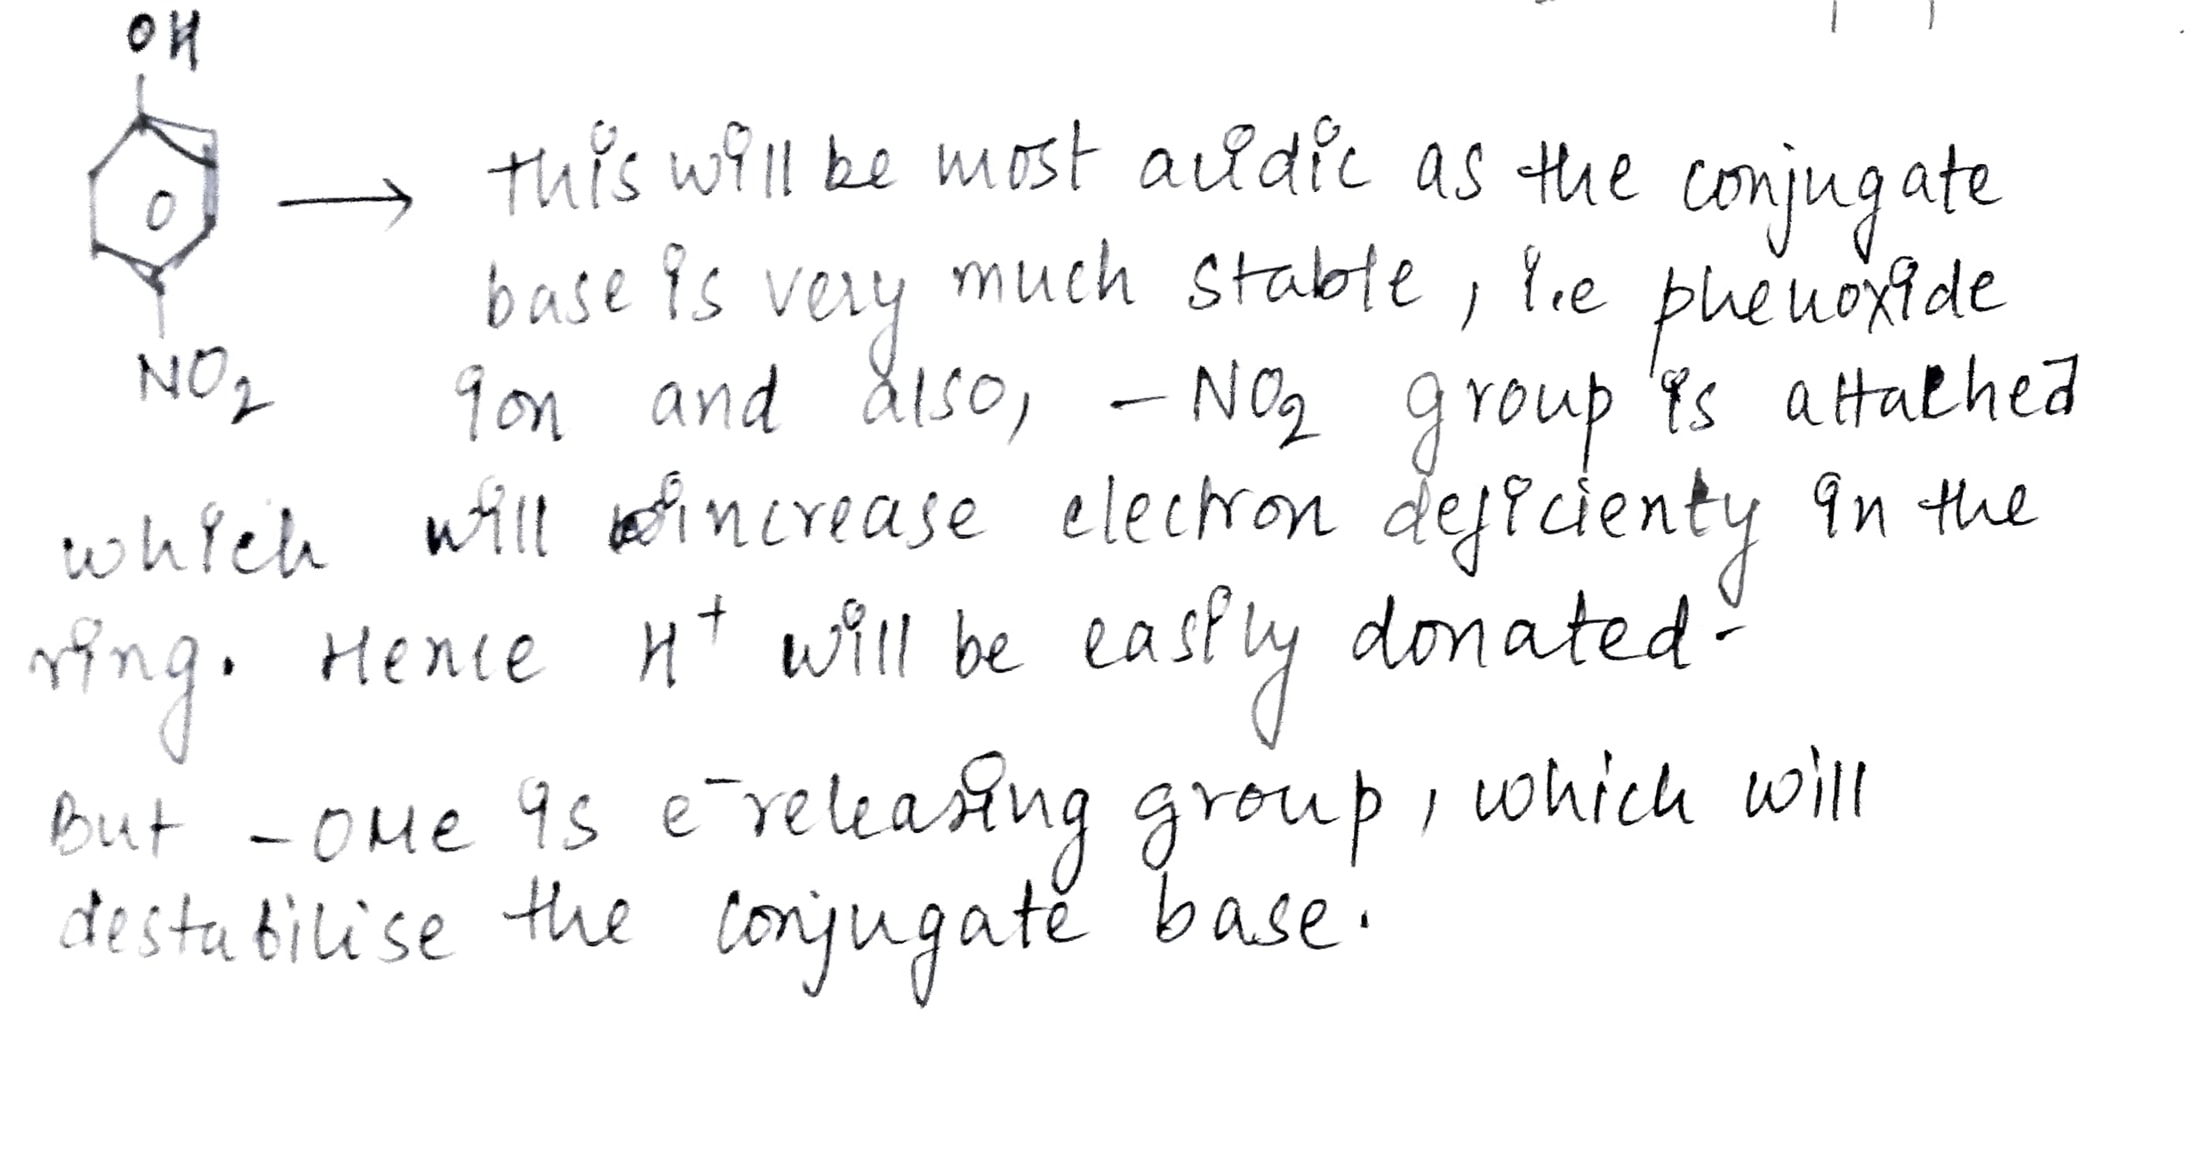 OH
NO2
this will be most acidic as the conjugate
base is very much stable, i.e phenoxide
ion and also, - NO2 group is attached
which will increase electron deficienty in the
ring. Hence H+ will be easily donated-
But - OMe is e- releasing group, which will
destabilise the conjugate base.